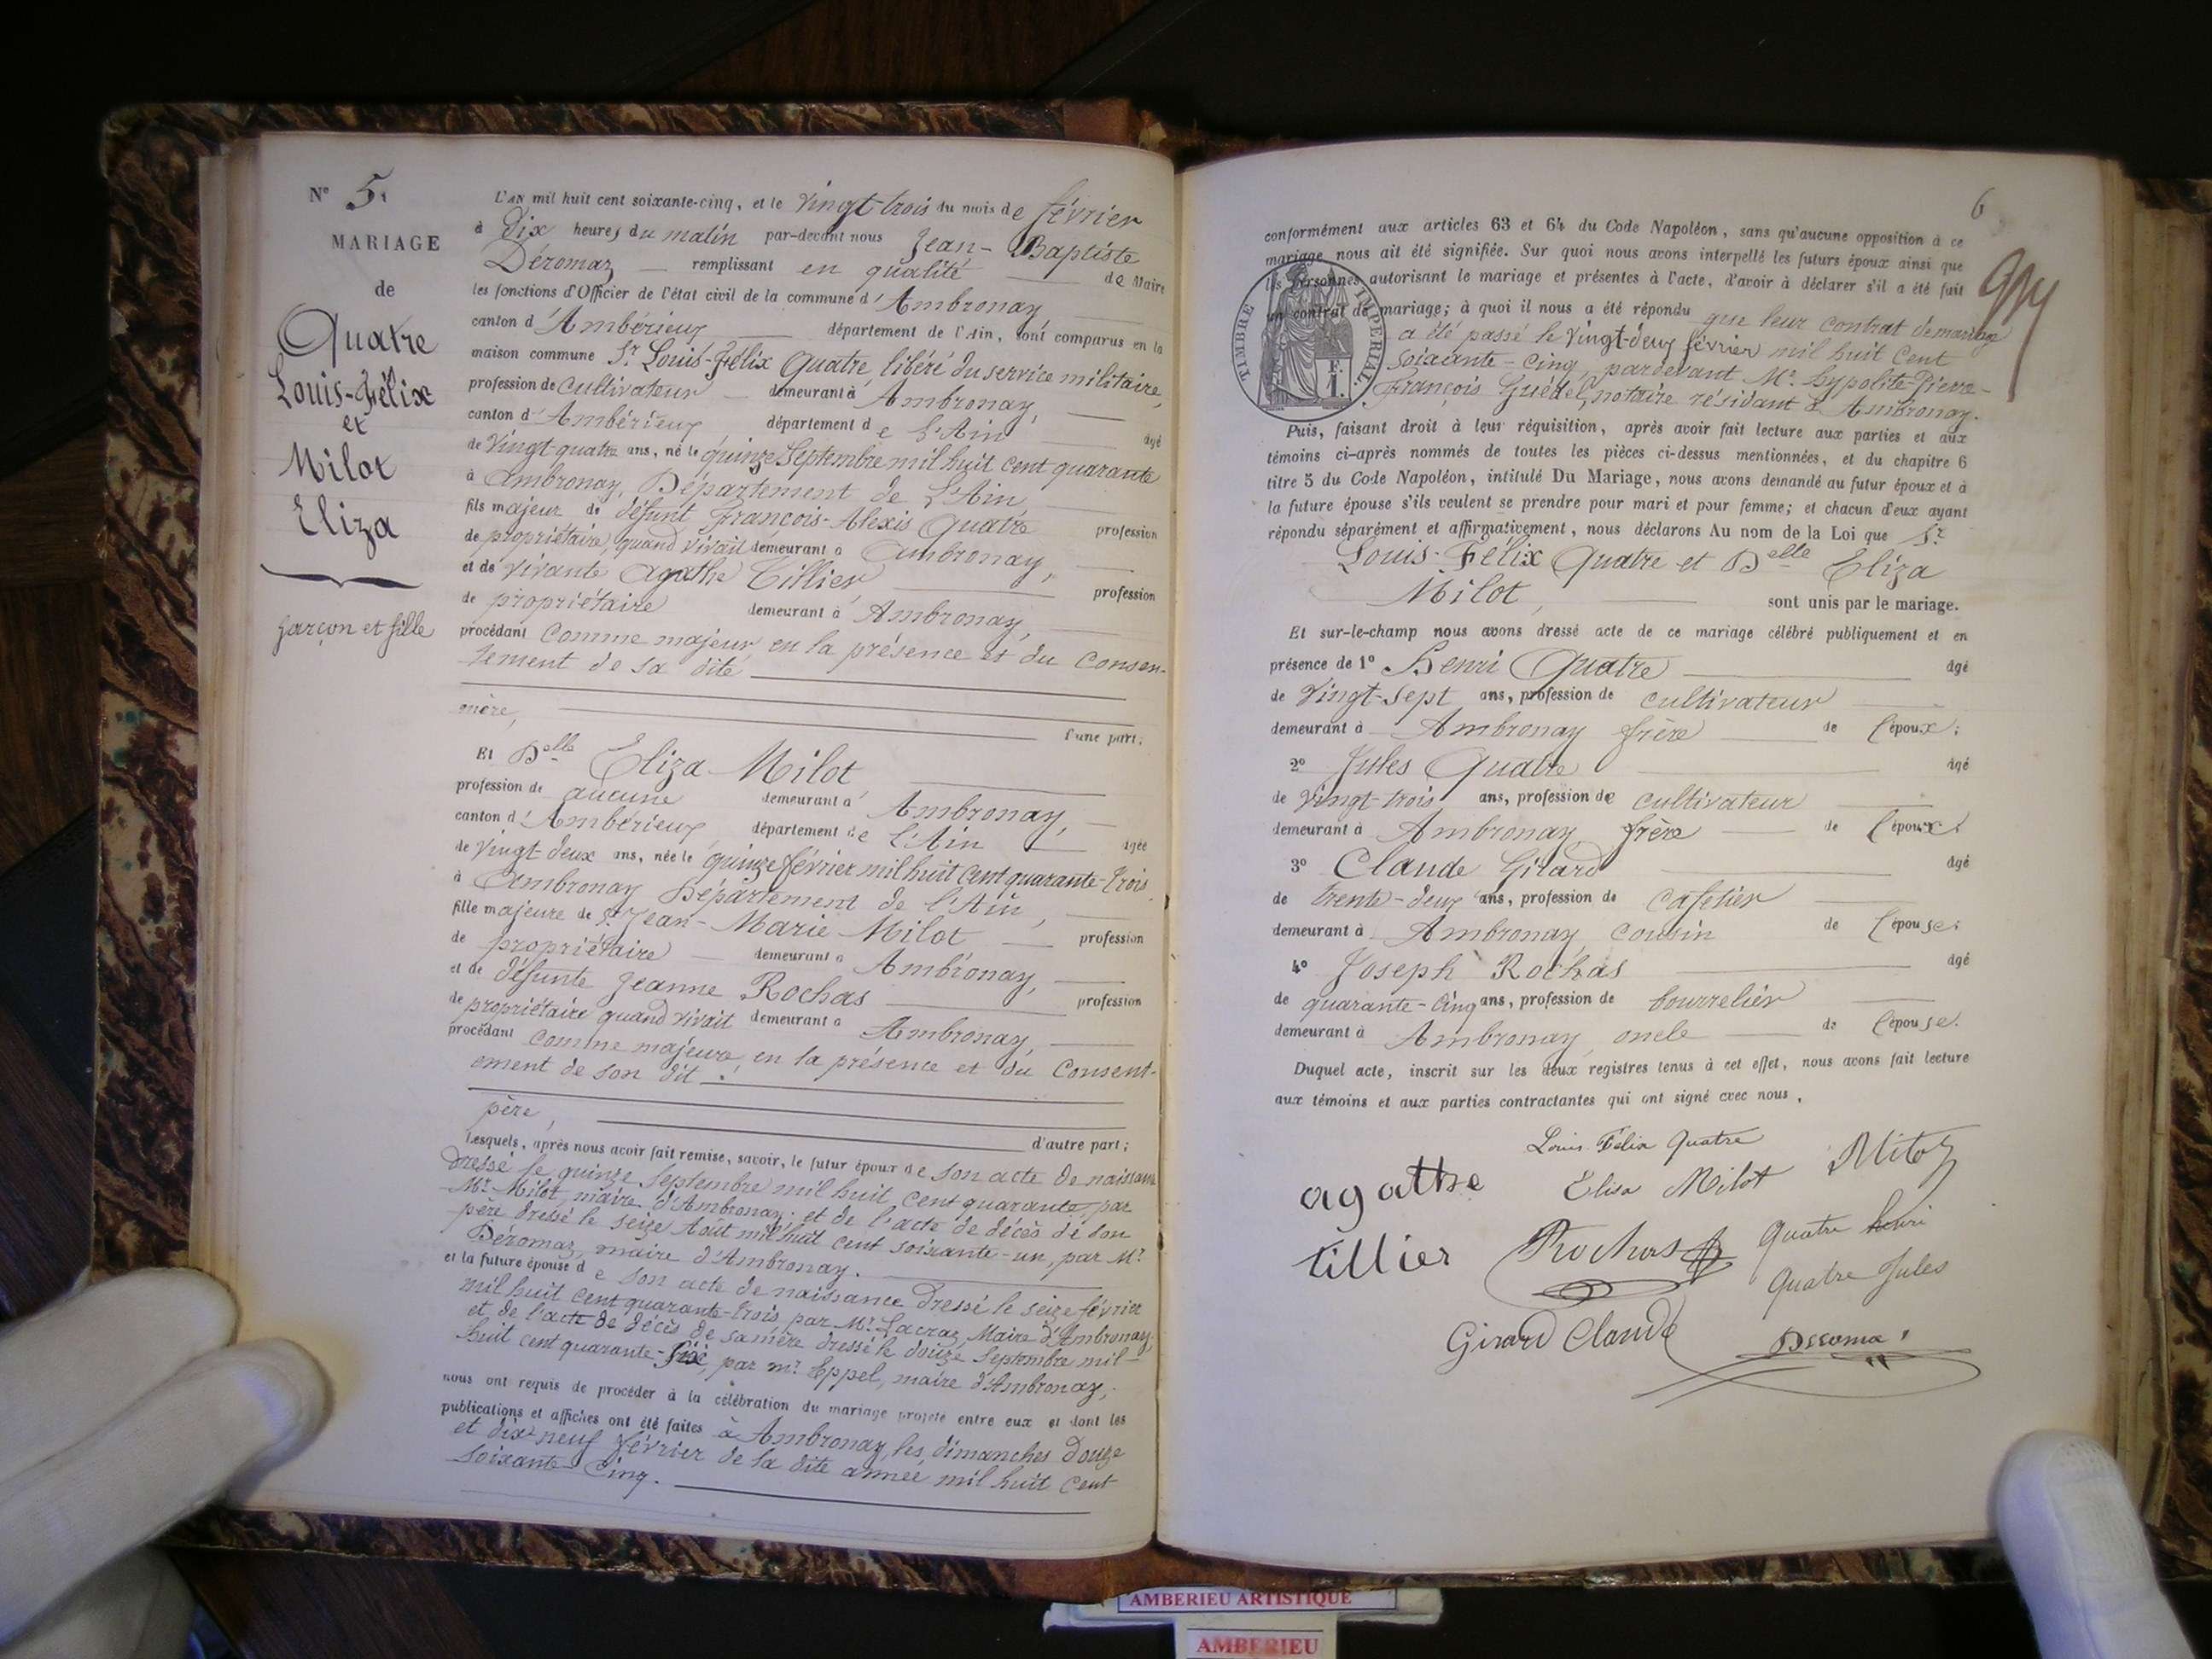 N° 5.
MARIAGE
de
Quatre
Louis-Félix
et
Milot
Eliza
garçon et fille
L'AN mil huit cent soixante-cinq, et le vingt-trois du mois de février
à Dix heures du matin par-devant nous Jean-Baptiste
Déromaz remplissant en qualité de Maire
les fonctions d'Officier de l'état civil de la commune d'Ambronay
canton d'Ambérieux département de l'Ain, sont comparus en la
maison commune Sr. Louis-Félix Quatre, libéré du service militaire,
profession de cultivateur demeurant à Ambronay,
canton d'Ambérieux département de l'Ain âgé
de vingt quatre ans, né le quinze Septembre mil huit cent quarante
à Ambronay, Département de l'Ain
fils majeur de défunt François-Alexis Quatre profession
de propriétaire, quand vivait demeurant à Ambronay,
et de vivante Agathe Tillier profession
de propriétaire demeurant à Ambronay,
procédant comme majeur en la présence et du Consen-
tement de sa dite
mère,
d'une part;
Et Delle Eliza Milot
profession de aucune demeurant à Ambronay,
canton d'Ambérieux département de l'Ain âgée
de vingt-deux ans, née le quinze février mil huit cent quarante-trois
à Ambronay Département de l'Ain,
fille majeure de Sr. Jean-Marie Milot profession
de propriétaire demeurant à Ambronay,
et de défunte Jeanne Rochas profession
de propriétaire quand vivait demeurant à Ambronay,
procédant comme majeure en la présence et du Consent-
ement de son dit
père,
d'autre part;
Lesquels, après nous avoir fait remise, savoir, le futur époux de son acte de naissance
dressé le quinze Septembre mil huit cent quarante, par
Mr. Milot, maire d'Ambronay; et de l'acte de décès de son
père dressé le seize Août mil huit cent soixante-un, par Mr.
Déromaz, maire d'Ambronay.
et la future épouse de son acte de naissance dressé le seize février
mil huit cent quarante-trois, par Mr. Lacraz, Maire d'Ambronay;
et de l'acte de décès de sa mère dressé le douze Septembre mil-
huit cent quarante-six, par mr. Eppel, maire d'Ambronay;
nous ont requis de procéder à la célébration du mariage projeté entre eux et dont les
publications et affiches ont été faites à Ambronay, les dimanches Douze
et dix-neuf février de la dite année mil huit cent
soixante-cinq.
6
conformément aux articles 63 et 64 du Code Napoléon, sans qu'aucune opposition à ce
mariage nous ait été signifiée. Sur quoi nous avons interpellé les futurs époux ainsi que
les personnes autorisant le mariage et présentes à l'acte, d'avoir à déclarer s'il a été fait
un contrat de mariage; à quoi il nous a été répondu que leur contrat de mariage
a été passé le vingt-deux février mil huit cent
soixante-cinq, pardevant Me. hypolite-Pierre-
François Guédel, notaire résidant à Ambronay.
TIMBRE IMPERIAL.
F.
1.
Puis, faisant droit à leur réquisition, après avoir fait lecture aux parties et aux
témoins ci-après nommés de toutes les pièces ci-dessus mentionnées, et du chapitre 6
titre 5 du Code Napoléon, intitulé Du Mariage, nous avons demandé au futur époux et à
la future épouse s'ils veulent se prendre pour mari et pour femme; et chacun d'eux ayant
répondu séparément et affirmativement, nous déclarons Au nom de la Loi que Sr.
Louis-Félix Quatre et Delle Eliza
Milot, sont unis par le mariage.
Et sur-le-champ nous avons dressé acte de ce mariage célébré publiquement et en
présence de 1° Henri Quatre âgé
de vingt-sept ans, profession de cultivateur
demeurant à Ambronay frère de l'époux;
2° Jules Quatre âgé
de vingt-trois ans, profession de cultivateur
demeurant à Ambronay frère de l'époux;
3° Claude Girard âgé
de trente-deux ans, profession de cafetier
demeurant à Ambronay cousin de l'épouse;
4° Joseph Rochas âgé
de quarante-cinq ans, profession de bourrelier
demeurant à Ambronay oncle de l'épouse.
Duquel acte, inscrit sur les deux registres tenus à cet effet, nous avons fait lecture
aux témoins et aux parties contractantes qui ont signé avec nous.
Louis Félix Quatre
agathe Elisa Milot Milot
tillier Rochas Quatre henri
Quatre Jules
Girard Claude Déroma
AMBERIEU ARTISTIQUE
AMBERIEU